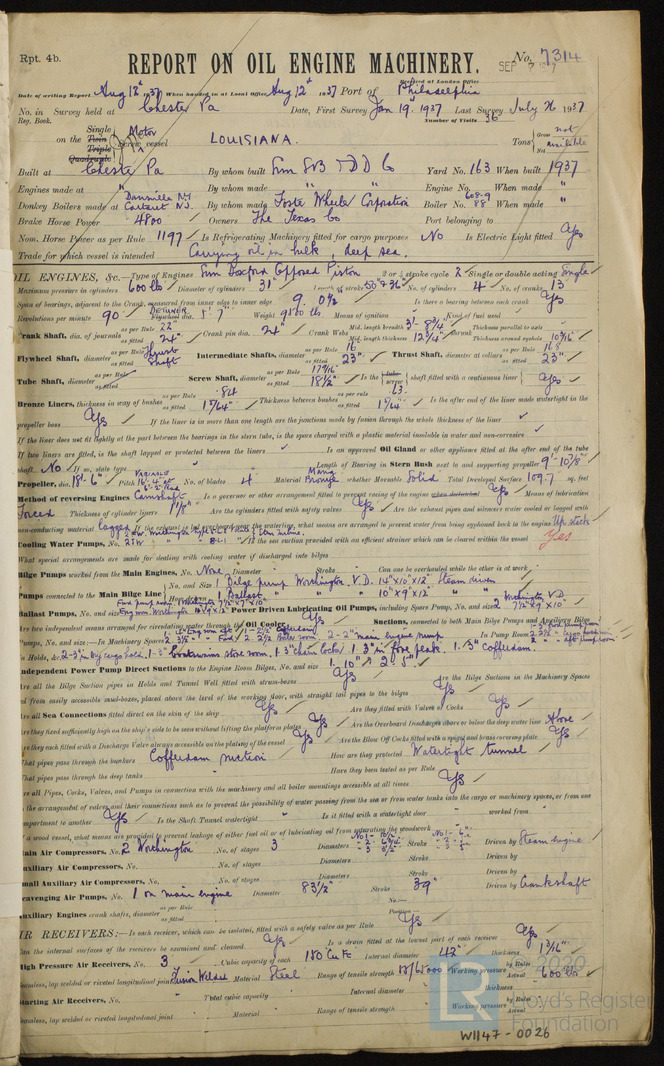 Rpt. 4b.
REPORT ON OIL ENGINE MACHINERY.
No. 7314
Received at London Office
SEP 7 1937
Date of writing Report Aug 12th 1937 When handed in at Local Office Aug 12th 1937 Port of Philadelphia
No. in Survey held at Chester Pa Date, First Survey Jan 19th 1937 Last Survey July 26 1937
Reg. Book. Number of Visits 36
on the Single Twin Triple Quadruple Screw vessel Motor LOUISIANA. Tons Gross not available Net
Built at Chester Pa By whom built Sun SB & DD Co Yard No. 163 When built 1937
Engines made at " By whom made " Engine No. When made "
Donkey Boilers made at Dansville NY Carteret N.J. By whom made Foster Wheeler Corporation Boiler No. 608-9 88 When made "
Brake Horse Power 4800 Owners The Texas Co Port belonging to
Nom. Horse Power as per Rule 1197 Is Refrigerating Machinery fitted for cargo purposes No Is Electric Light fitted Yes
Trade for which vessel is intended Carrying oil in bulk, deep sea.
OIL ENGINES, &c. Type of Engines Sun Doxford Opposed Piston 2 or 4 stroke cycle 2 Single or double acting Single
Maximum pressure in cylinders 600 lbs Diameter of cylinders 31" Length of stroke No. of cylinders 4 No. of cranks 13
Span of bearings, adjacent to the Crank, measured from inner edge to inner edge Is there a bearing between each crank Yes
Revolutions per minute 90 Flywheel dia. Weight Means of ignition Kind of fuel used
Crank Shaft, dia. of journals as per Rule 22" as fitted 24" Crank pin dia. 24" Crank Webs Mid. length breadth 3'-8 3/4" Mid. length thickness 12 3/4" Thickness parallel to axis shrunk Thickness around eyehole 10 9/16"
Flywheel Shaft, diameter as per Rule Thrust as fitted Shaft Intermediate Shafts, diameter as per Rule 16" as fitted 23" Thrust Shaft, diameter at collars as per Rule 16.8 as fitted 23"
Tube Shaft, diameter as per Rule as fitted Screw Shaft, diameter as per Rule 17 9/16" as fitted 18 1/2" Is the tube screw shaft fitted with a continuous liner Yes
Bronze Liners, thickness in way of bushes as per Rule .84 as fitted Thickness between bushes as per rule .63 as fitted Is the after end of the liner made watertight in the
propeller boss Yes If the liner is in more than one length are the junctions made by fusion through the whole thickness of the liner
If the liner does not fit tightly at the part between the bearings in the stern tube, is the space charged with a plastic material insoluble in water and non-corrosive
If two liners are fitted, is the shaft lapped or protected between the liners Is an approved Oil Gland or other appliance fitted at the after end of the tube
shaft No If so, state type Length of Bearing in Stern Bush next to and supporting propeller 9'-10 7/8"
Propeller, dia. 18'-6" Pitch No. of blades 4 Material Mang Bronze whether Moveable Solid Total Developed Surface 109.7 sq. feet
Method of reversing Engines Camshaft Is a governor or other arrangement fitted to prevent racing of the engine when declutched Yes Means of lubrication
Forced Thickness of cylinder liners Are the cylinders fitted with safety valves Yes Are the exhaust pipes and silencers water cooled or lagged with
non-conducting material lagged If the exhaust is led overboard near the waterline, what means are arranged to prevent water from being syphoned back to the engine Up stack
Cooling Water Pumps, No. Is the sea suction provided with an efficient strainer which can be cleared within the vessel Yes
What special arrangements are made for dealing with cooling water if discharged into bilges
Bilge Pumps worked from the Main Engines, No. None Diameter Stroke Can one be overhauled while the other is at work
Pumps connected to the Main Bilge Line No. and Size 1 Bilge pump Worthington V.D. 14"x10"x12" Steam driven
1 Ballast " " 10"x9"x12" "
Ballast Pumps, No. and size Power Driven Lubricating Oil Pumps, including Spare Pump, No. and size 2 Worthington V.D. 7 1/2"x9"x10"
Are two independent means arranged for circulating water through the Oil Cooler Yes Suctions, connected to both Main Bilge Pumps and Auxiliary Bilge
Pumps, No. and size:—In Machinery Spaces 2-2" main engine pump In Pump Room
In Holds, &c. 2-3" in dry cargo hold, 1-3" boatswains store room, 1.3" chain locker, 1.3" in fore peak. 1.3" Cofferdam.
Independent Power Pump Direct Suctions to the Engine Room Bilges, No. and size 1. 10" & 2. 5"
Are all the Bilge Suction pipes in Holds and Tunnel Well fitted with strum-boxes Yes Are the Bilge Suctions in the Machinery Spaces
led from easily accessible mud-boxes, placed above the level of the working floor, with straight tail pipes to the bilges Yes
Are all Sea Connections fitted direct on the skin of the ship Yes Are they fitted with Valves or Cocks Yes
Are they fixed sufficiently high on the ship's side to be seen without lifting the platform plates Yes Are the Overboard Discharges above or below the deep water line Above
Are they each fitted with a Discharge Valve always accessible on the plating of the vessel Yes Are the Blow Off Cocks fitted with a spigot and brass covering plate Yes
What pipes pass through the bunkers Cofferdam suction How are they protected Watertight tunnel
What pipes pass through the deep tanks Have they been tested as per Rule
Are all Pipes, Cocks, Valves, and Pumps in connection with the machinery and all boiler mountings accessible at all times Yes
Is the arrangement of valves and their connections such as to prevent the possibility of water passing from the sea or from water tanks into the cargo or machinery spaces, or from one
compartment to another Yes Is the Shaft Tunnel watertight Is it fitted with a watertight door worked from
If a wood vessel, what means are provided to prevent leakage of either fuel oil or of lubricating oil from saturating the woodwork
Main Air Compressors, No. 2 Worthington No. of stages 3 Diameters Stroke Driven by Steam engine
Auxiliary Air Compressors, No. No. of stages Diameters Stroke Driven by
Small Auxiliary Air Compressors, No. No. of stages Diameters Stroke Driven by
Scavenging Air Pumps, No. 1 on main engine Diameter 83 1/2" Stroke 39" Driven by Crankshaft
Auxiliary Engines crank shafts, diameter as per Rule as fitted No. Position
AIR RECEIVERS:—Is each receiver, which can be isolated, fitted with a safety valve as per Rule Yes
Can the internal surfaces of the receivers be examined and cleaned Yes Is a drain fitted at the lowest part of each receiver Yes
High Pressure Air Receivers, No. 3 Cubic capacity of each 150 Cu Ft Internal diameter 42" thickness 1 3/16"
Seamless, lap welded or riveted longitudinal joint Fusion Welded Material Steel Range of tensile strength Working pressure by Rules Actual 600 lbs
Starting Air Receivers, No. Total cubic capacity Internal diameter thickness
Seamless, lap welded or riveted longitudinal joint Material Range of tensile strength Working pressure by Rules Actual
© 2020
Lloyd's Register
Foundation
W1147-0026